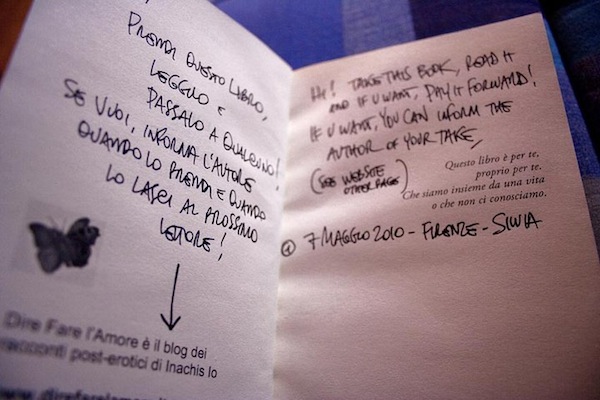 PRENDI QUESTO LIBRO,
LEGGILO E
PASSALO A QUALCUNO!
SE VUOI, INFORMA L'AUTORE
QUANDO LO PRENDI E QUANDO
LO LASCI AL PROSSIMO
LETTORE!
Dire Fare l'Amore è il blog dei
racconti post-erotici di Inachis Io
HI! TAKE THIS BOOK, READ IT
AND IF U WANT, PAY IT FORWARD!
IF U WANT, YOU CAN INFORM THE
AUTHOR OF YOUR TAKE,
(SEE WEBSITE
OTHER PAGE)
Questo libro è per te,
proprio per te.
Che siamo insieme da una vita
o che non ci conosciamo.
7 MAGGIO 2010 - FIRENZE - SILVIA